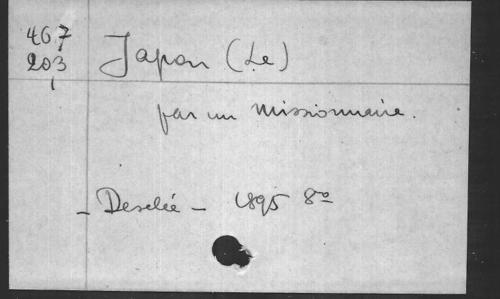 467 Japon (Le)
203
par un missionnaire.
- Desclée - 1895 8º